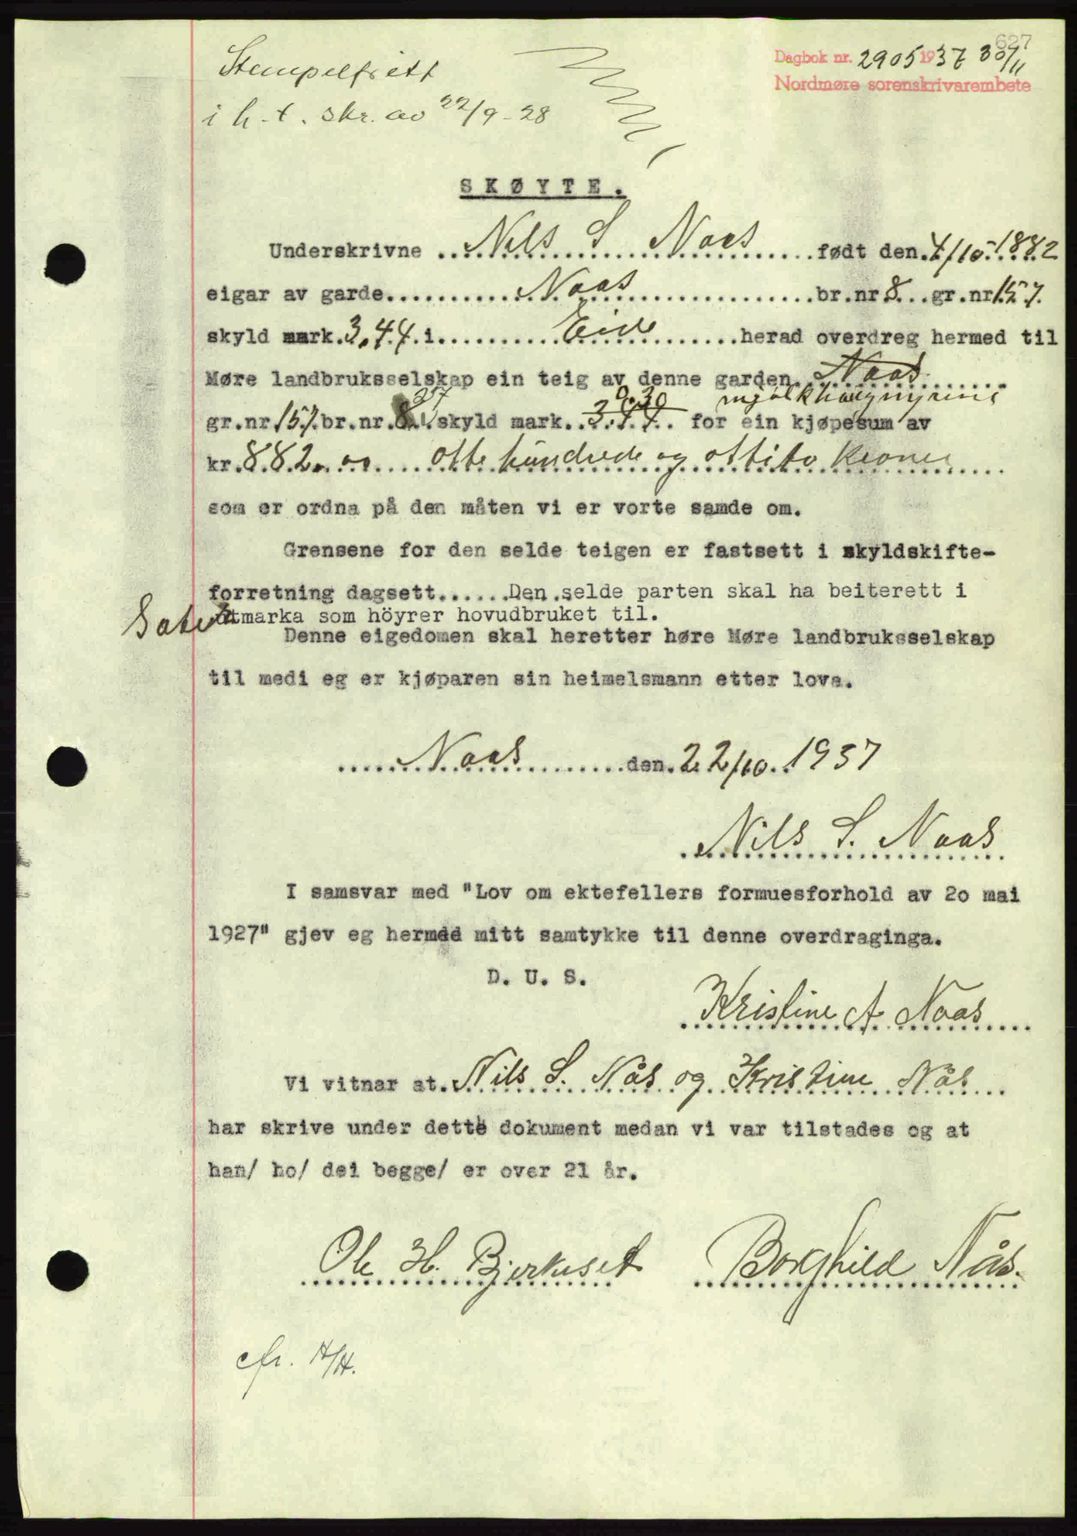 627
Dagbok nr. 2905 1937 30/11
Nordmøre sorenskrivarembete
Stempelfritt
i h.t. skr. av 22/9-28
SKØYTE.
Underskrivne Nils S Naas født den 4/10-1882
eigar av garde Naas br.nr 8 gr.nr 157
skyld mark. 3,44 i Eide herad overdreg hermed til
Møre landbruksselskap ein teig av denne garden Naas
mjølkhaugmyrene
gr.nr 157 br.nr. 8 37 skyld mark. 3.44 0,30 for ein kjøpesum av
kr. 882.00 otte hundrede og ottito kroner
som er ordna på den måten vi er vorte samde om.
Grensene for den selde teigen er fastsett i skyldskifte-
forretning dagsett......Den selde parten skal ha beiterett i
utmarka som höyrer hovudbruket til.
Denne eigedomen skal heretter høre Møre landbruksselskap
til medi eg er kjøparen sin heimelsmann etter lova.
Naas den 22/10 1937
Nils S. Naas
I samsvar med "Lov om ektefellers formuesforhold av 2o mai
1927" gjev eg hermed mitt samtykke til denne overdraginga.
D. U. S.
Kristine A Naas
Vi vitnar at Nils S. Nås og Kristine Nås
har skrive under dette dokument medan vi var tilstades og at
han/ ho/ dei begge/ er over 21 år.
Ole H. Bjerkeset Borghild Nås.
cfr. H/H.